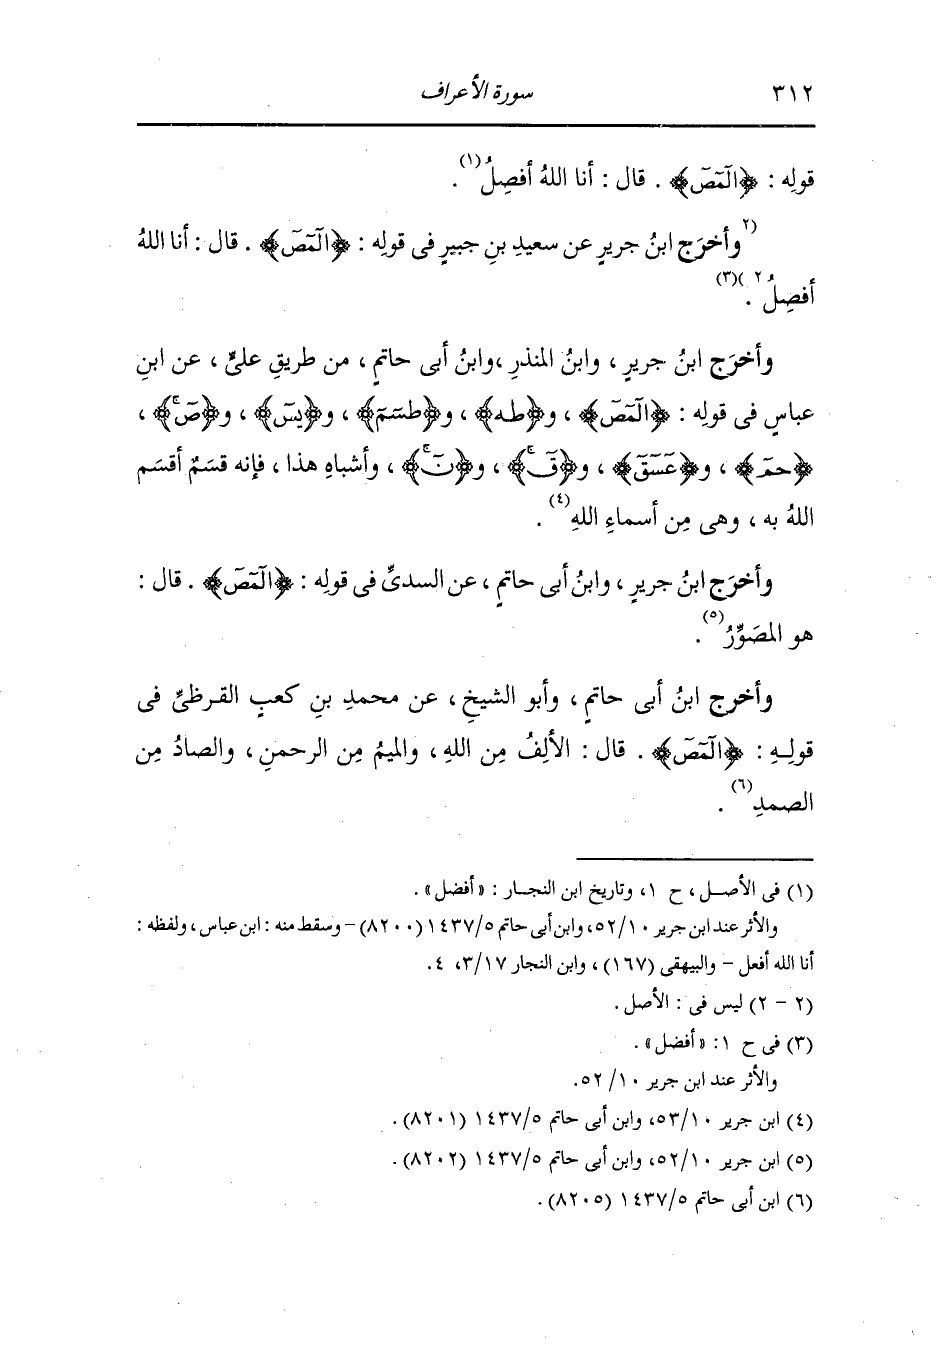 ٣١٢ سورة الأعراف
قولِه : ﴿الٓمٓصٓ﴾ . قال : أنا اللهُ أفصِلُ(١) .
(٢ وأخرَج ابنُ جريرٍ عن سعيدِ بنِ جبيرٍ فى قولِه : ﴿الٓمٓصٓ﴾ . قال : أنا اللهُ
أفصِلُ ٢)(٣) .
وأخرَج ابنُ جريرٍ ، وابنُ المنذرِ ،وابنُ أبى حاتمٍ ، من طريقِ علىٍّ ، عن ابنِ
عباسٍ فى قولِه : ﴿الٓمٓصٓ﴾ ، و﴿طه﴾ ، و﴿طسٓمٓ﴾ ، و﴿يسٓ﴾ ، و﴿صٓۚ﴾ ،
﴿حمٓ﴾ ، و﴿عٓسٓقٓ﴾ ، و﴿قٓۚ﴾ ، و﴿نٓۚ﴾ ، وأشباهِ هذا ، فإنه قسَمٌ أقسَم
اللهُ به ، وهى مِن أسماءِ اللهِ(٤) .
وأخرَج ابنُ جريرٍ ، وابنُ أبى حاتمٍ ، عن السدىِّ فى قولِه : ﴿الٓمٓصٓ﴾ . قال :
هو المصَوِّرُ(٥) .
وأخرج ابنُ أبى حاتمٍ ، وأبو الشيخِ ، عن محمدِ بنِ كعبٍ القرظىِّ فى
قولِهِ : ﴿الٓمٓصٓ﴾ . قال : الألِفُ مِن اللهِ ، والميمُ مِن الرحمنِ ، والصادُ مِن
الصمدِ(٦) .
(١) فى الأصل ، ح ١، وتاريخ ابن النجار : « أفضل » .
والأثر عند ابن جرير ٥٢/١٠، وابن أبى حاتم ١٤٣٧/٥ (٨٢٠٠) – وسقط منه : ابن عباس ، ولفظه :
أنا الله أفعل – والبيهقى (١٦٧) ، وابن النجار ٣/١٧، ٤.
(٢ – ٢) ليس فى : الأصل .
(٣) فى ح ١: « أفضل » .
والأثر عند ابن جرير ١٠/ ٥٢.
(٤) ابن جرير ٥٣/١٠، وابن أبى حاتم ١٤٣٧/٥ (٨٢٠١) .
(٥) ابن جرير ٥٢/١٠، وابن أبى حاتم ١٤٣٧/٥ (٨٢٠٢) .
(٦) ابن أبى حاتم ١٤٣٧/٥ (٨٢٠٥) .